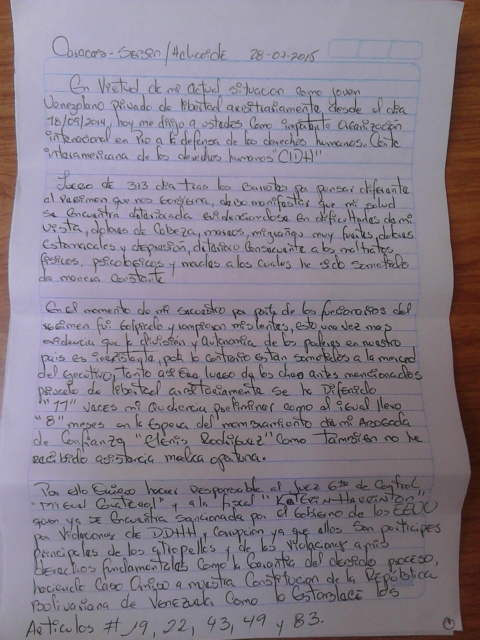 Caracas - Sebin / Helicoide 28-07-2015
En Virtud de mi actual situacion como joven
Venezolano privado de libertad arbitrariamente desde el dia
18/09/2014, hoy me dirijo a ustedes como importante organización
internacional en Pro a la defensa de los derechos humanos. Corte
interamericana de los derechos humanos "CIDH"
Luego de 313 dia tras los barrotes por pensar diferente
al regimen que nos gobierna, debo manifestar que mi salud
se encuentra deteriorada evidenciandose en dificultades de mi
vista, dolores de Cabeza, mareos, migrañas muy fuertes, dolores
Estomacales y depresion, deterioro consecuente a los maltratos
fisicos, psicologicos y morales a los cuales he sido sometido
de manera constante
En el momento de mi secuestro por parte de los funcionarios del
regimen fui golpeado y rompieron mis lentes, esto una vez mas
evidencia que la division y Autonomia de los poderes en nuestro
pais es inexistente, por lo contrario estan sometidos a la merced
del ejecutivo, tanto asi que luego de los dias antes mencionados
privado de libertad arbitrariamente se ha Diferido
"11" veces mi Audiencia preliminar como al igual llevo
"8" meses en la Espera del nombramiento de mi Abogada
de Confianza "Elenis Rodriguez" Como tambien no he
recibido asistencia medica oportuna.
Por esto Quiero hacer responsable al Juez 6to de Control
"Miguel Graterol" y a la fiscal "Katerin Harington"
quien ya se Encuentra Sancionada por el Gobierno de los EEUU
por Violaciones de DDHH y Corrupcion ya que ellos Son participes
principales de los atropellos y de los violaciones a mis
derechos fundamentales como la Garantia del debido proceso,
haciendo Caso Omiso a nuestra Constitucion de la República
Bolivariana de Venezuela Como lo Establece los
Articulos # 19, 22, 43, 49 y 83.